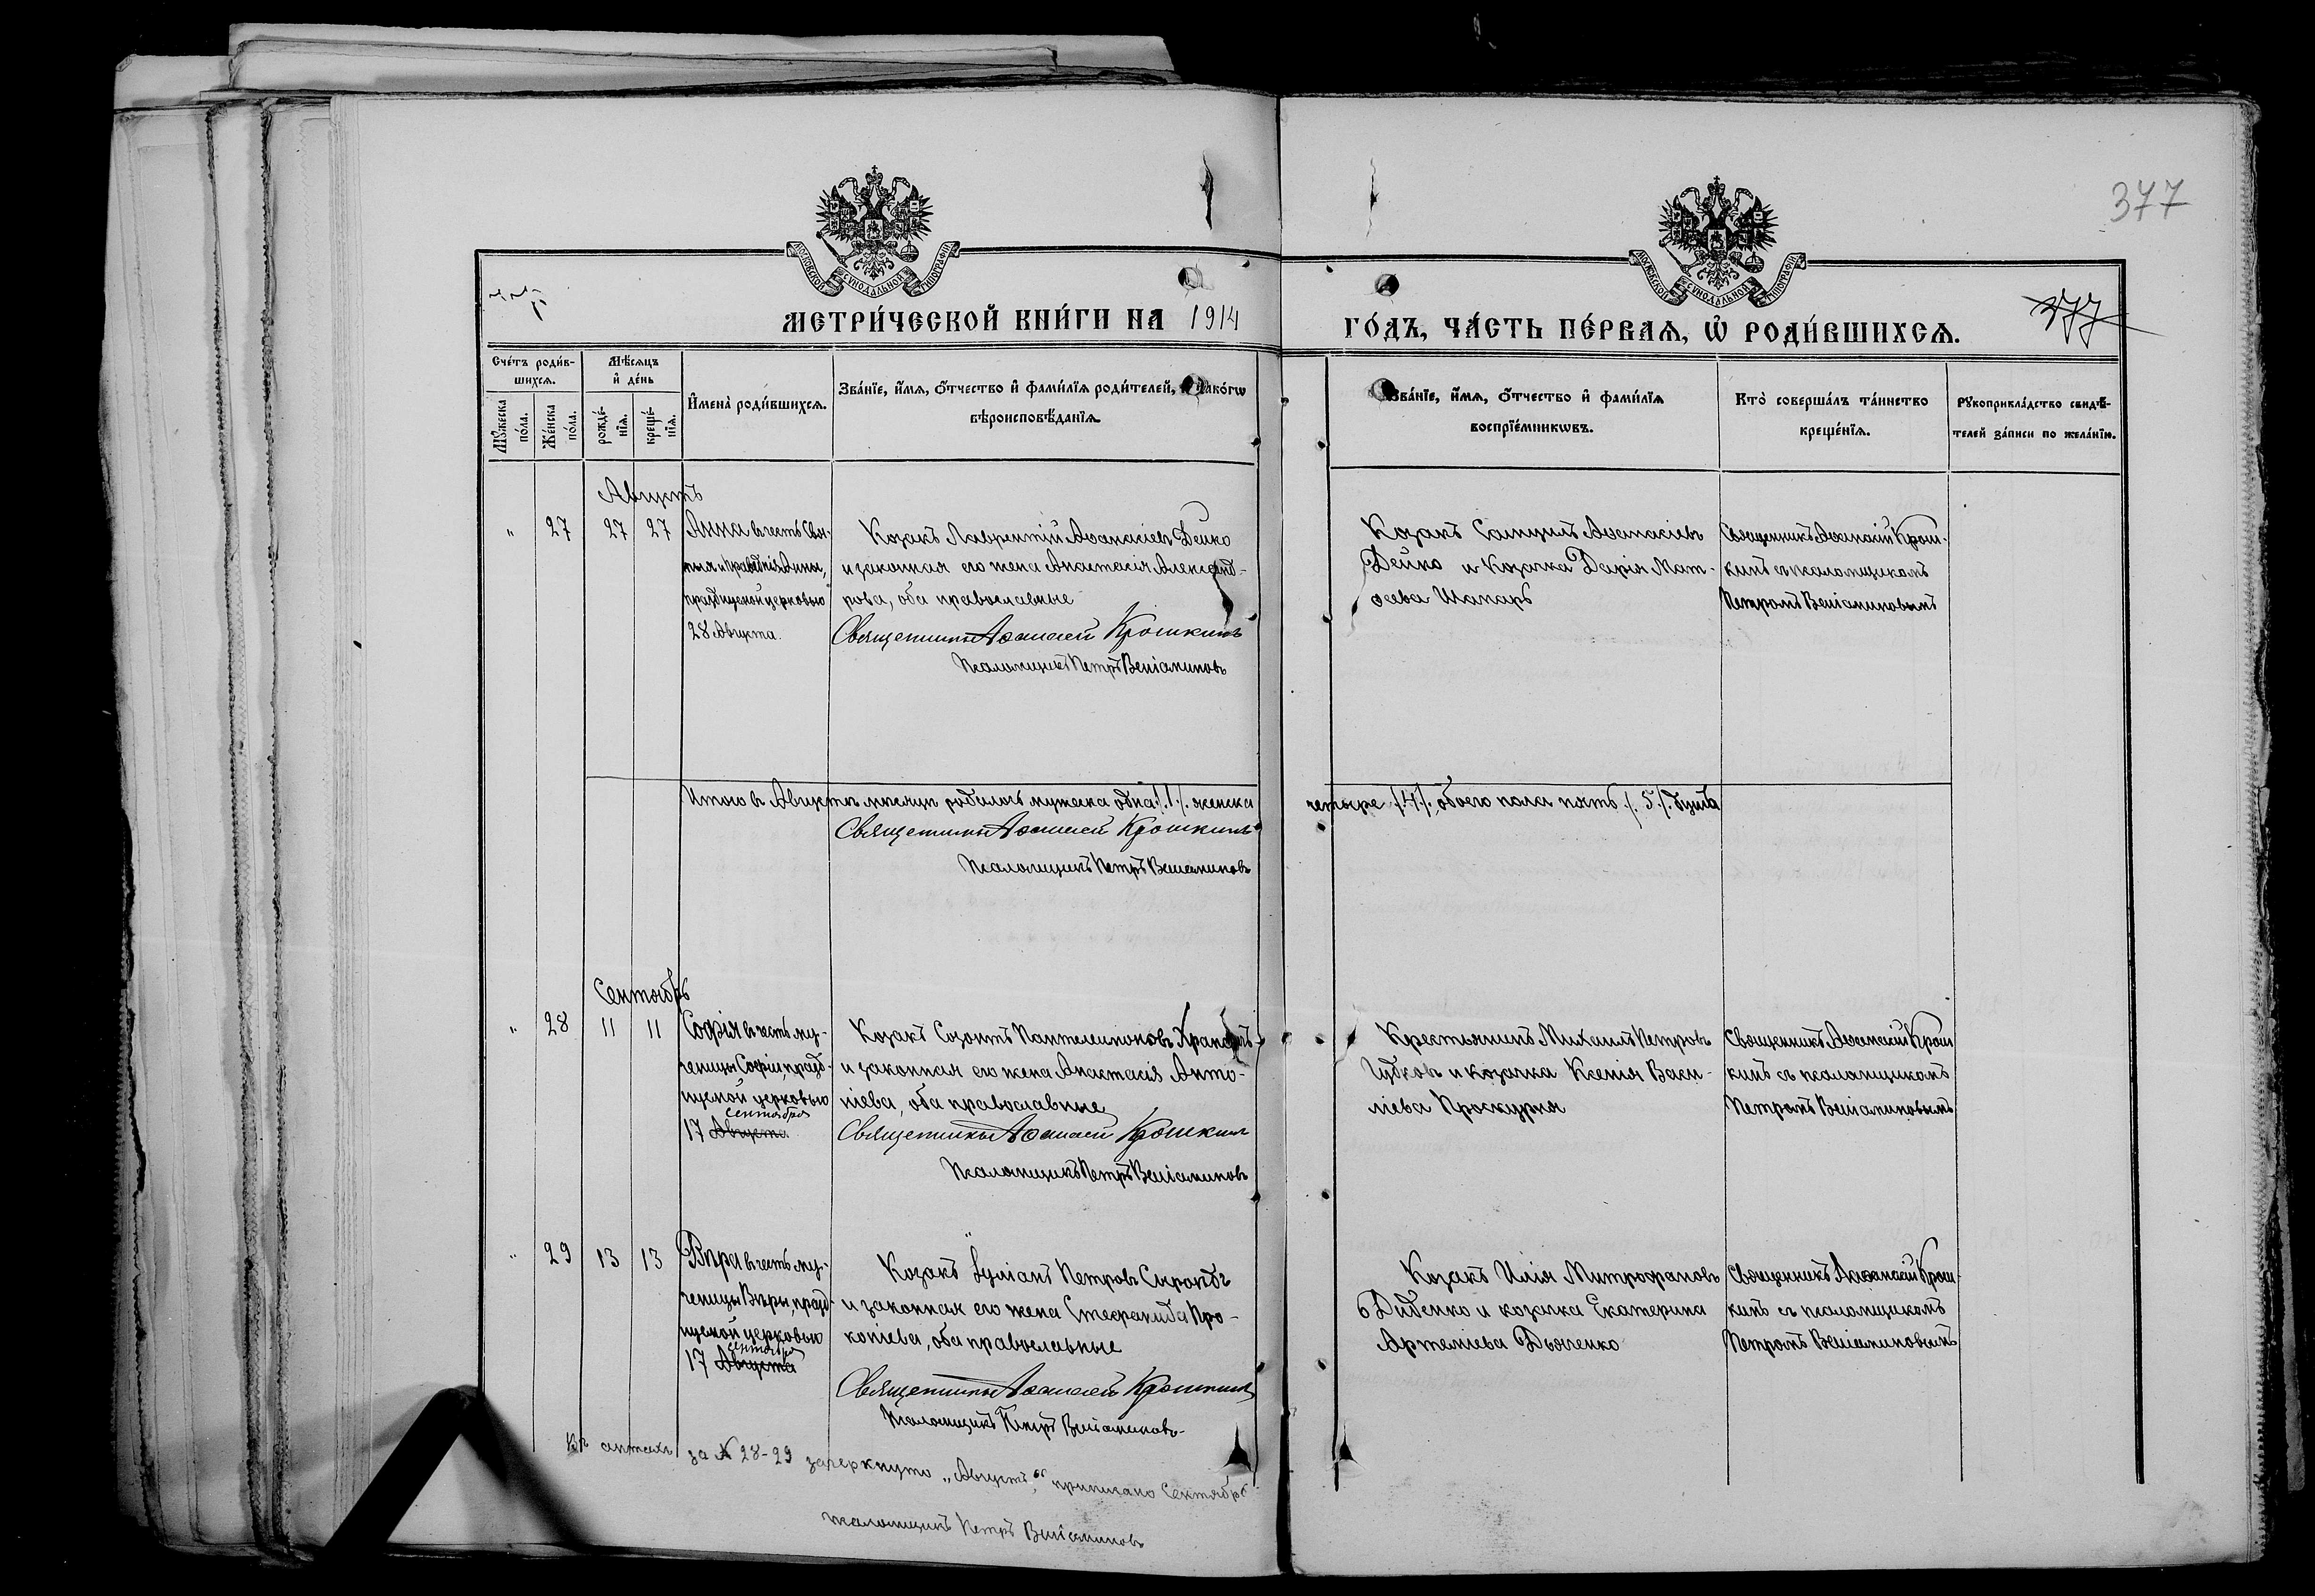 377
МОСКОВСКОЙ СѴНОДАЛЬНОЙ ТИПОГРАФІИ
МОСКОВСКОЙ СѴНОДАЛЬНОЙ ТИПОГРАФІИ
МЕТРИ́ЧЕСКОЙ КНИ́ГИ НА 1914
ГО́ДЪ, ЧА́СТЬ ПЕ́РВАѦ, Ѽ РОДИ́ВШИХСѦ.
377
Сче́тъ роди́в-
шихсѧ.
Мꙋ́жеска по́ла.
Же́нска по́ла.
Мѣ́сѧцъ
и҆ де́нь
рожде́-
нїѧ.
креще́-
нїѧ.
И҆мена̀ роди́вшихсѧ.
Зва́нїе, и҆́мѧ, ѻ҆́тчество и҆ фами́лїѧ роди́телей, и҆ како́гѡ
вѣроисповѣ́данїѧ.
Зва́нїе, и҆́мѧ, ѻ҆́тчество и҆ фами́лїѧ
воспрїе́мникѡвъ.
Кто̀ соверша́лъ та́инство
креще́нїѧ.
Рꙋкоприкла́дство свидѣ́-
телей за́писи по жела́нїю.
Августъ
" 27 27 27
Анна въ честь Свя-
тыя и Праведнiя Анны,
празднуемой церковью
28 Августа.
Козакъ Лаврентій Аѳанасіевъ Дейко
и законная его жена Анастасія Александ-
рова, оба православные
Священникъ Аѳанасій Крошкинъ
Псаломщикъ Петръ Веніаминовъ
Козакъ Самуилъ Аѳанасіевъ
Дейко и Козачка Дарія Мат-
ѳеева Шапарь
Священникъ Аѳанасій Крош-
кинъ съ псаломщикомъ
Петромъ Веніаминовымъ
Итого въ Августѣ мѣсяцѣ родилось мужеска одна /.1./. женска
четыре /.4./. обоего пола пять /.5./. душъ
Священникъ Аѳанасій Крошкинъ
Псаломщикъ Петръ Веніаминовъ
Сентябрь
" 28 11 11
Софія въ честь му-
ченицы Софіи, празд-
нуемой церковью
сентября
17 Августа
Козакъ Созонтъ Пантелеимоновъ
и законная его жена Анастасія Анто-
ніева, оба православные
Священникъ Аѳанасій Крошкинъ
Псаломщикъ Петръ Веніаминовъ
Крестьянинъ Михаилъ Петровъ
Губковъ и козачка Ксенія Васи-
ліева Проскурня
Священникъ Аѳанасій Крош-
кинъ съ псаломщикомъ
Петромъ Веніаминовымъ
" 29 13 13
Вѣра въ честь му-
ченицы Вѣры, празд-
нуемой церковью
сентября
17 Августа
Козакъ Іуліанъ Петровъ
и законная его жена Стефанида Про-
копіева, оба православные
Священникъ Аѳанасій Крошкинъ
Псаломщикъ Петръ Веніаминовъ
Козакъ Илія Митрофановъ
Диденко и козачка Екатерина
Артеміева Дьяченко
Священникъ Аѳанасій Крош-
кинъ съ псаломщикомъ
Петромъ Веніаминовымъ
Въ актахъ за № 28-29 зачеркнуто „Августъ", приписано Сентябрь
псаломщикъ Петръ Веніаминовъ